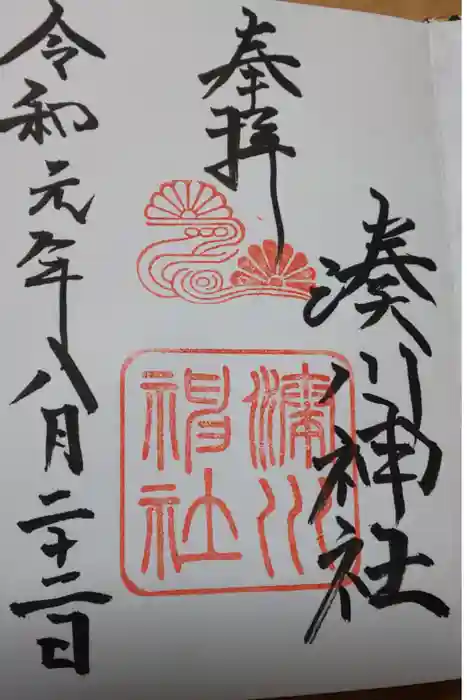 奉拝
湊川神社
湊川神社
令和元年八月二十二日